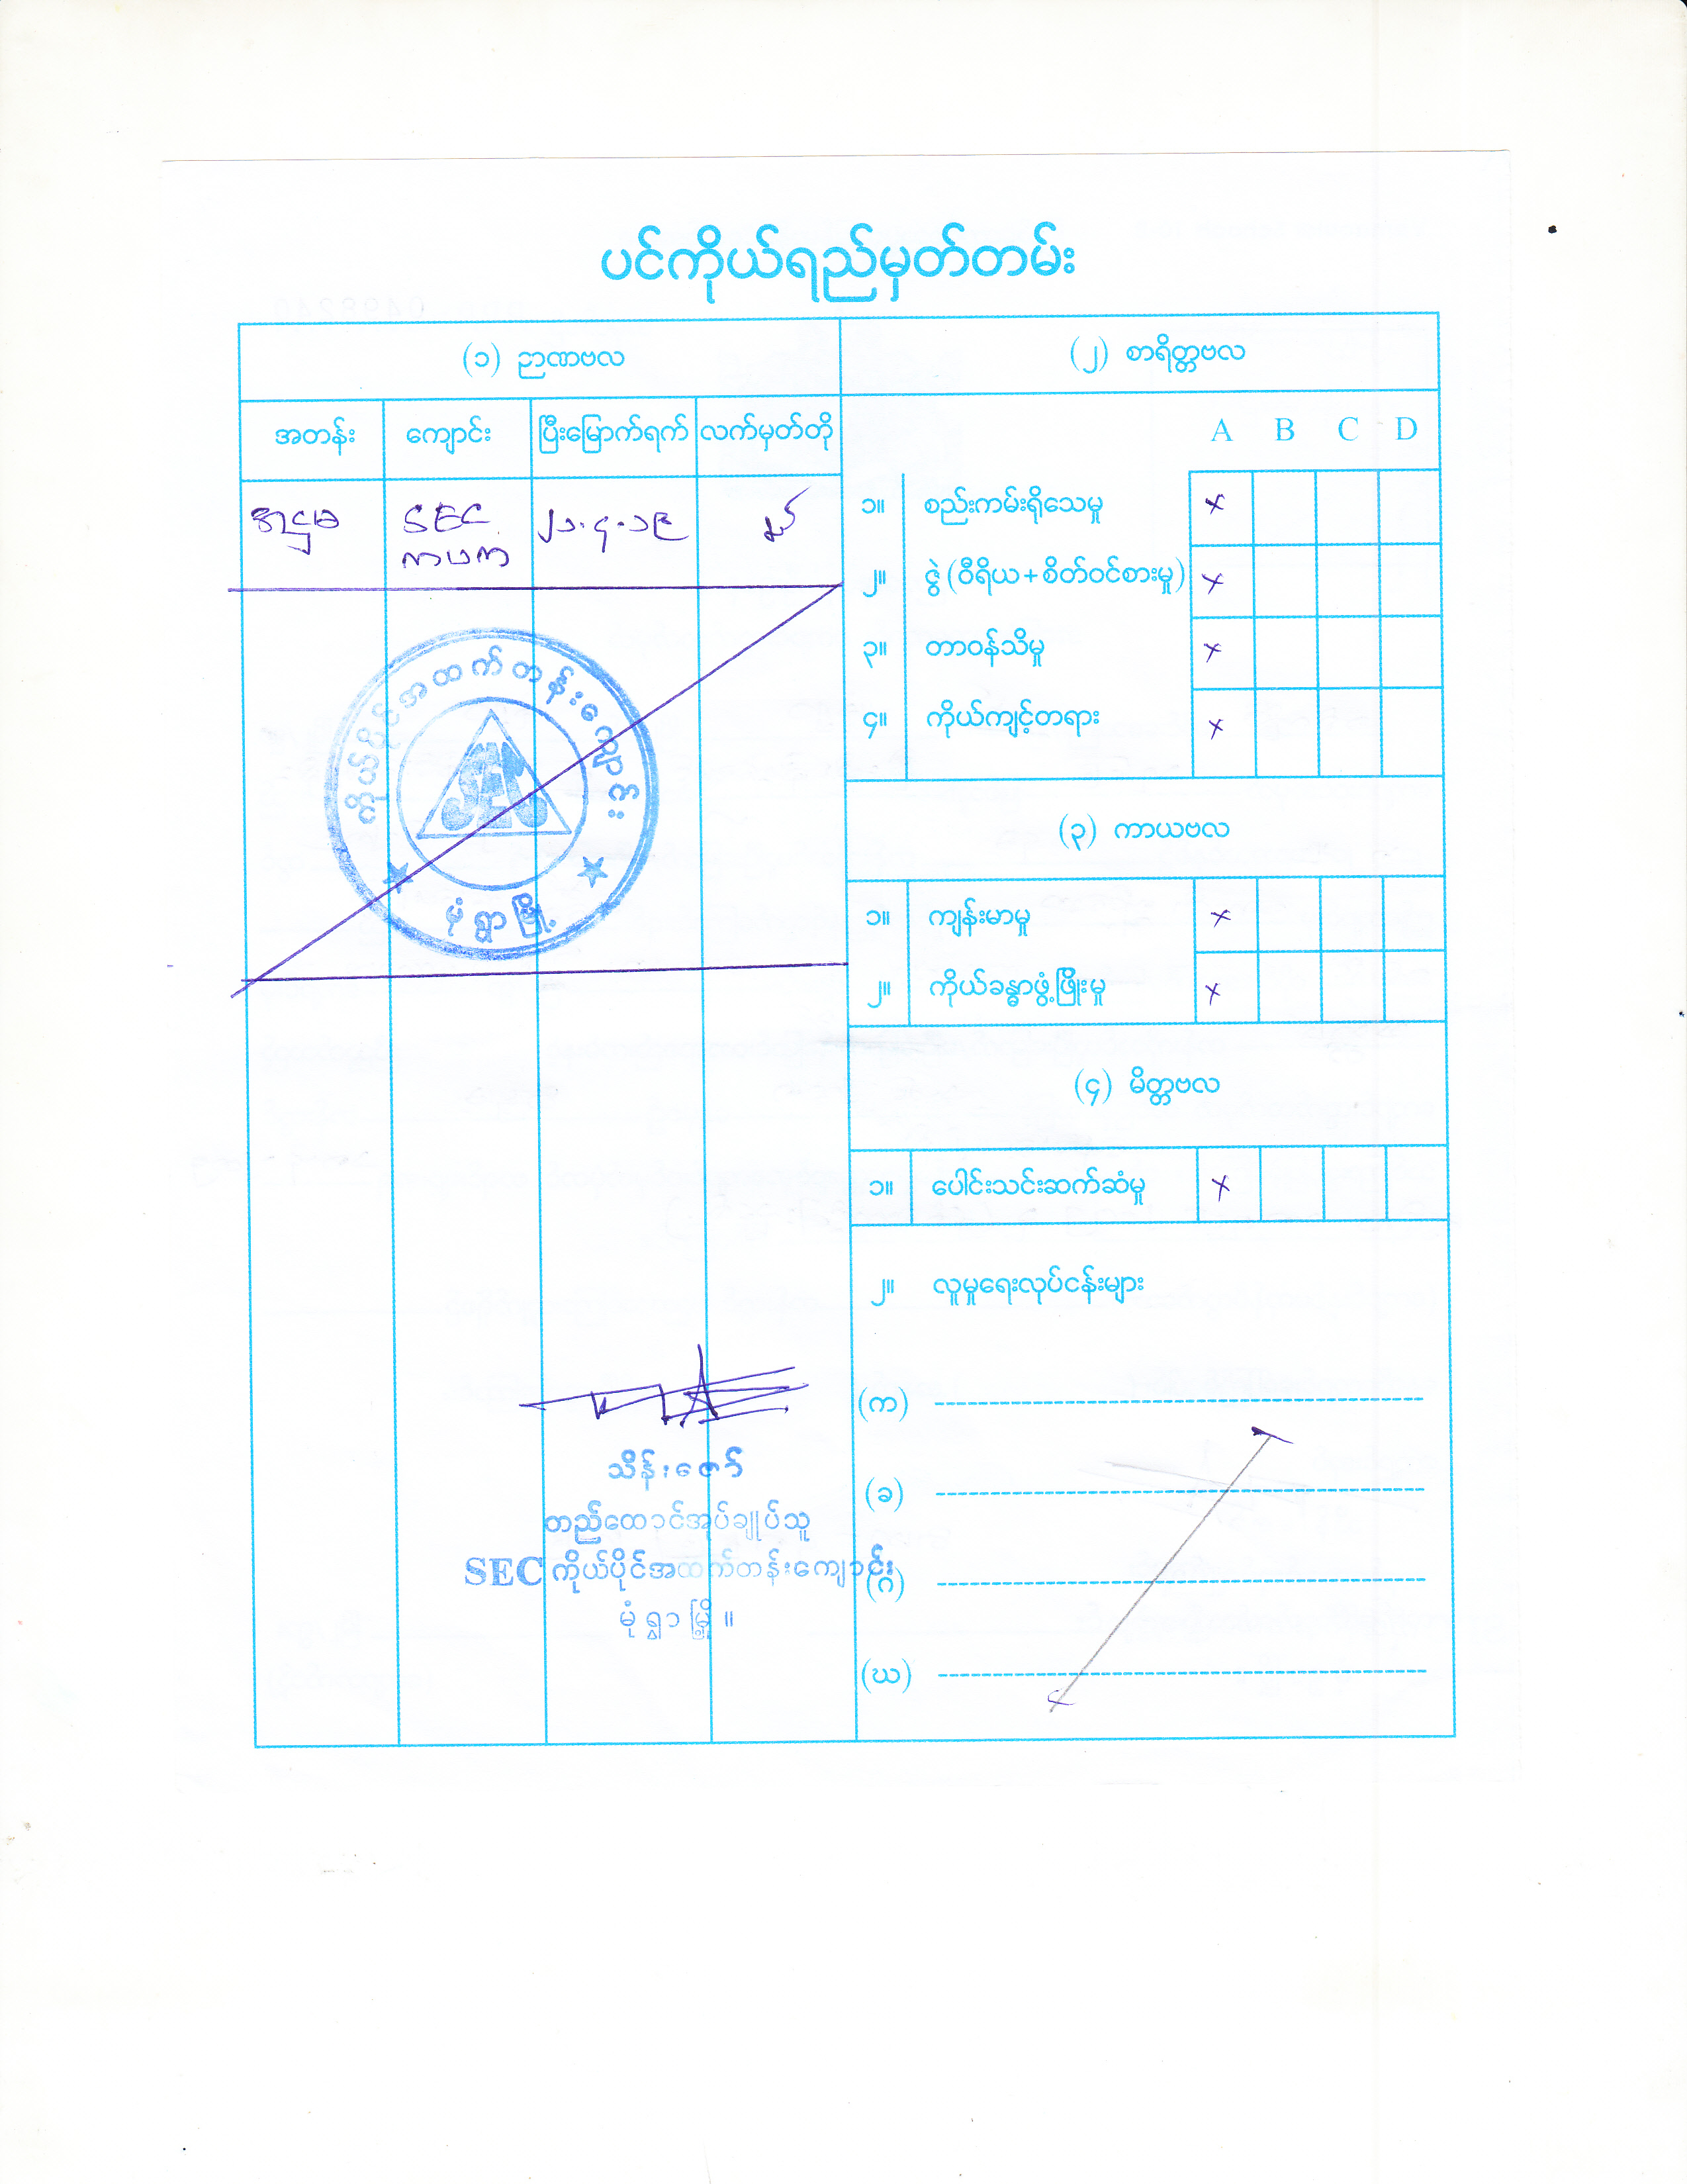 ပင်ကိုယ်ရည်မှတ်တမ်း
(၁) ဉာဏဗလ
အတန်း ကျောင်း ပြီးမြောက်ရက် လက်မှတ်တို
အဋ္ဌမ SEC ၂၁.၄.၁၉
ကပက
ကိုယ်ပိုင်အထက်တန်းကျောင်း
SEC
မုံရွာမြို့
သိန်းဇော်
တည်ထောင်အုပ်ချုပ်သူ
SEC ကိုယ်ပိုင်အထက်တန်းကျောင်း
မုံရွာမြို့။
(၂) စာရိတ္တဗလ
A B C D
၁။ စည်းကမ်းရိုသေမှု ×
၂။ ဇွဲ (ဝီရိယ + စိတ်ဝင်စားမှု) ×
၃။ တာဝန်သိမှု ×
၄။ ကိုယ်ကျင့်တရား ×
(၃) ကာယဗလ
၁။ ကျန်းမာမှု ×
၂။ ကိုယ်ခန္ဓာဖွံ့ဖြိုးမှု ×
(၄) မိတ္တဗလ
၁။ ပေါင်းသင်းဆက်ဆံမှု ×
၂။ လူမှုရေးလုပ်ငန်းများ
(က)
(ခ)
(ဂ)
(ဃ)